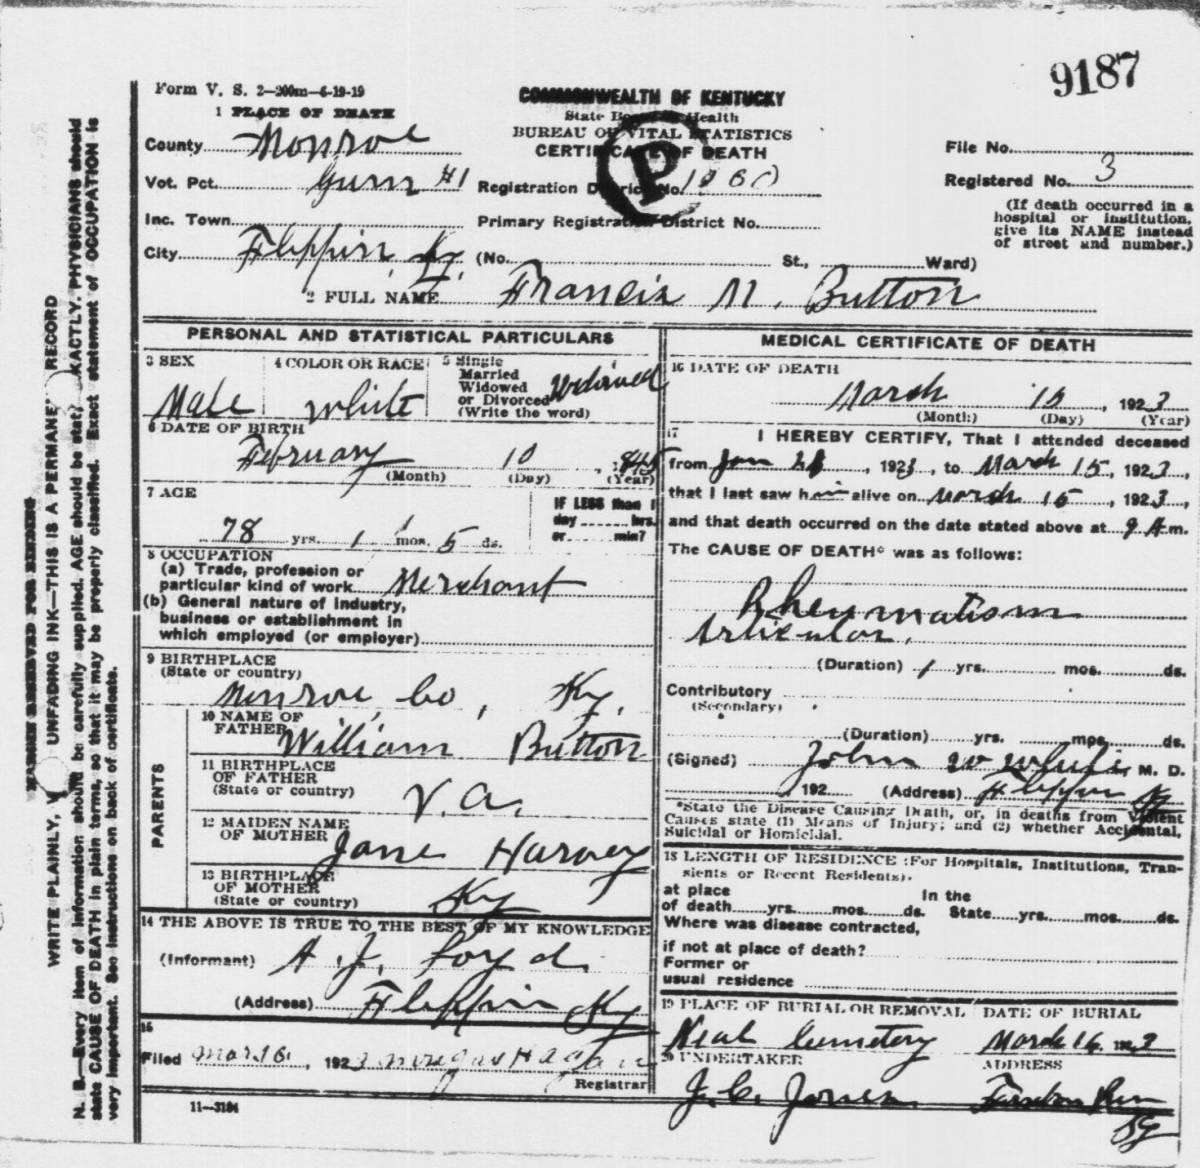 9187
Form V. S. 2—200m—6-19-19
COMMONWEALTH OF KENTUCKY
State Board of Health
BUREAU OF VITAL STATISTICS
CERTIFICATE OF DEATH
P
1 PLACE OF DEATH
County Monroe
Vot. Pct. Gum #1
Registration District No.
Inc. Town
Primary Registration District No.
City Flippin, Ky. (No. St., Ward)
File No.
Registered No. 3
(If death occurred in a
hospital or institution,
give its NAME instead
of street and number.)
2 FULL NAME Francis M. Button
PERSONAL AND STATISTICAL PARTICULARS
3 SEX
Male
4 COLOR OR RACE
White
5 Single
Married
Widowed
or Divorced
(Write the word)
Widowed
6 DATE OF BIRTH
February 10, 1845
(Month) (Day) (Year)
7 AGE
78 yrs. 1 mos. 5 ds.
IF LESS than 1
day hrs.
or min?
8 OCCUPATION
(a) Trade, profession or
particular kind of work Merchant
(b) General nature of industry,
business or establishment in
which employed (or employer)
9 BIRTHPLACE
(State or country)
Monroe, Co, Ky.
PARENTS
10 NAME OF
FATHER William Button
11 BIRTHPLACE
OF FATHER
(State or country) Va.
12 MAIDEN NAME
OF MOTHER Jane Harvey
13 BIRTHPLACE
OF MOTHER
(State or country) Ky
14 THE ABOVE IS TRUE TO THE BEST OF MY KNOWLEDGE
(Informant) A. J. Loyd.
(Address) Flippin Ky
15
Filed Mar 16, 1923
Registrar
11—3184
MEDICAL CERTIFICATE OF DEATH
16 DATE OF DEATH
March 15, 1923
(Month) (Day) (Year)
17 I HEREBY CERTIFY, That I attended deceased
from Jan, 1923, to March 15, 1923,
that I last saw him alive on March 15, 1923,
and that death occurred on the date stated above at 9 A.m.
The CAUSE OF DEATH* was as follows:
Rheumatism
Articular.
(Duration) 1 yrs. mos. ds.
Contributory
(Secondary)
(Duration) yrs. mos. ds.
(Signed) John W White, M. D.
, 192 (Address) Flippin Ky
*State the Disease Causing Death, or, in deaths from Violent
Causes state (1) Means of Injury; and (2) whether Accidental,
Suicidal or Homicidal.
18 LENGTH OF RESIDENCE (For Hospitals, Institutions, Tran-
sients or Recent Residents).
at place In the
of death yrs. mos. ds. State yrs. mos. ds.
Where was disease contracted,
if not at place of death?
Former or
usual residence
19 PLACE OF BURIAL OR REMOVAL DATE OF BURIAL
Neal Cemetery March 16, 1923
20 UNDERTAKER ADDRESS
J. C. Jones Ky
MARGIN RESERVED FOR BINDING
WRITE PLAINLY, UNFADING INK—THIS IS A PERMANE RECORD
N. B.—Every item of information should be carefully supplied. AGE should be stat EXACTLY. PHYSICIANS should
state CAUSE OF DEATH in plain terms, so that it may be properly classified. Exact statement of OCCUPATION is
very important. See instructions on back of certificate.